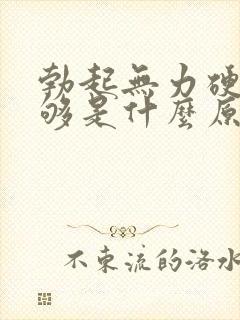 勃起無力硬
够是什麼原
不東流的洛水